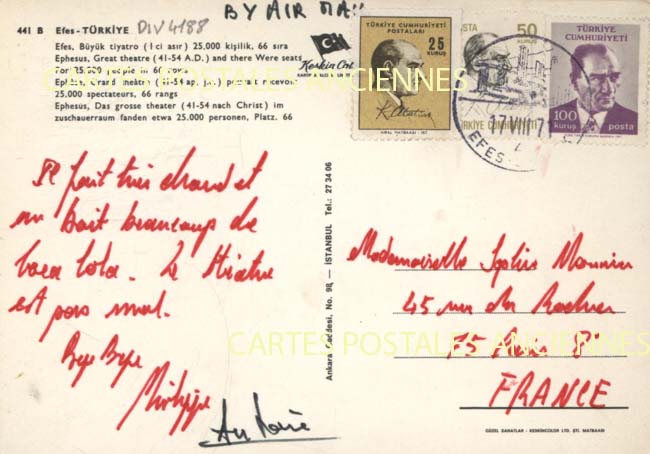 BY AIR MAIL
441 B Efes-TÜRKİYE DIV 4188
Efes, Büyük tiyatro (I ci asır) 25.000 kişilik, 66 sıra
Ephesus, Great theatre (41-54 A.D.) and there Were seats
For 25.000 people in 66 rows
Ephèse, Grand théâtre (41-54 ap. j.c.) pouvait recevoir
25.000 spectateurs, 66 rangs
Ephesus, Das grosse theater (41-54 nach Christ) im
zuschauerraum fanden etwa 25.000 personen, Platz. 66
Keskin Color
TÜRKİYE CUMHURİYETİ
POSTALARI
25
KURUŞ
K. Atatürk
POSTA
50
KURUŞ
TÜRKİYE CUMHURİYETİ
TÜRKİYE
CUMHURİYETİ
100
kuruş posta
EFES
CARTES POSTALES ANCIENNES
Il fait très chaud et
on boit beaucoup de
Coca Cola. Le théatre
est pas mal.
Bye Bye
Philippe
Ankara Caddesi, No. 98 — İSTANBUL Tel.: 27 34 06
Mademoiselle Sophie
45 rue du Rocher
75 Paris 8
FRANCE
CARTES POSTALES ANCIENNES
GÜZEL SANATLAR - KESKİNCOLOR LTD. ŞTİ. MATBAASI